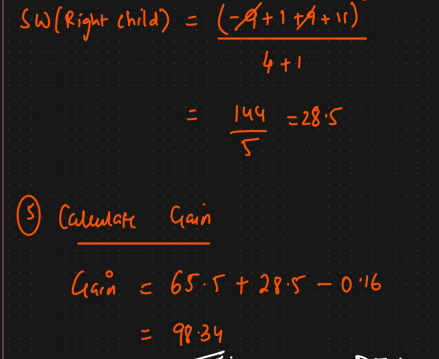 SW(Right child) = (-9+1+9+11)
4+1
= 144
5
= 28.5
⑤ Calculate Gain
Gain = 65.5 + 28.5 - 0.16
= 98.34